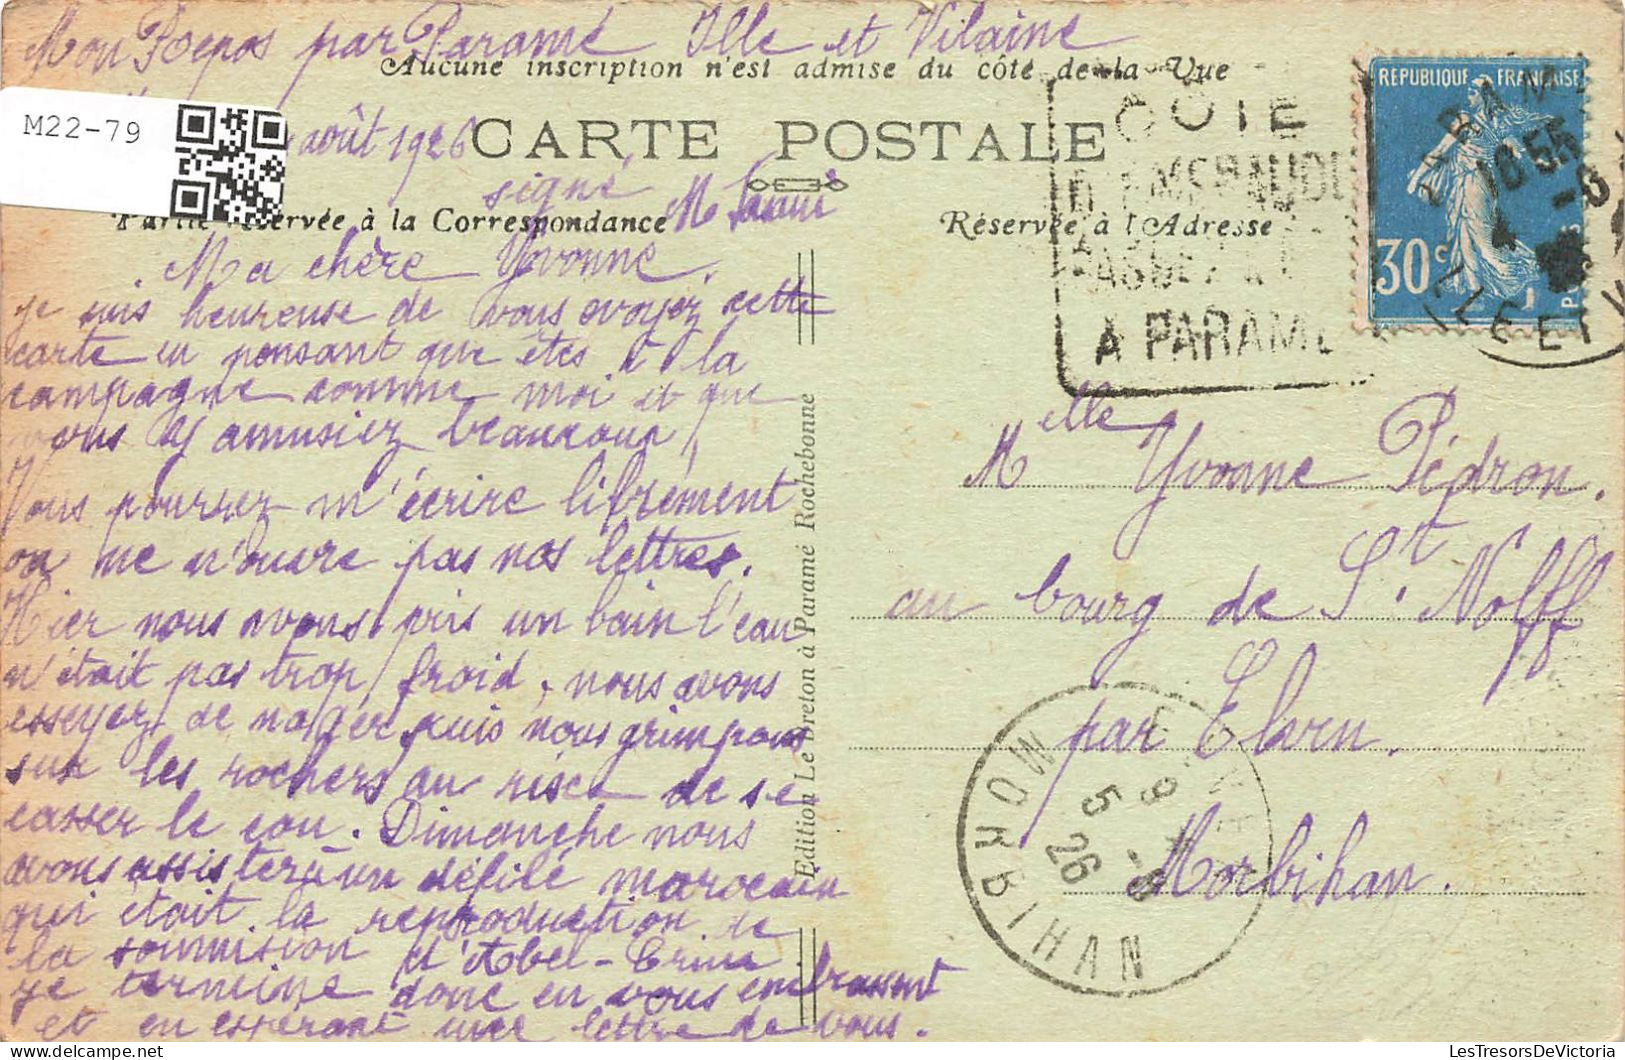 Mon Repos par Paramé Ille et Vilaine
Aucune inscription n'est admise du côté de la Vue
M22-79
août 1926
CARTE POSTALE
signé M
Partie réservée à la Correspondance
Réservée à l'Adresse
Ma chère Yvonne,
je suis heureuse de vous avoyez cette
carte en pensant que êtes à la
campagne comme moi et que
vous y amusiez beaucoup,
Vous pourrez m'écrire librement
on ne n'ouvre pas nos lettres.
Hier nous avons pris un bain l'eau
n'était pas trop froid, nous avons
esseyer de nager puis nous grimpons
sur les rochers au risce de se
casser le cou. Dimanche nous
avons assister à un défilé marocain
qui était la reproduction de
la soumision d'Abel-Crim
je termine donc en vous embrassent
et en esperant une lettre de vous.
Edition Le Breton à Paramé Rochebonne
CÔTE
D'EMERAUDE
A PARAMÉ
REPUBLIQUE FRANÇAISE
30c
POSTES
PARAMÉ
16 55
4 -8
ILLE ET V
Melle Yvonne Pédron.
au bourg de St. Nolff
par Elven.
Morbihan.
ELVEN
9
5 -8
26
MORBIHAN
LesTresorsDeVictoria